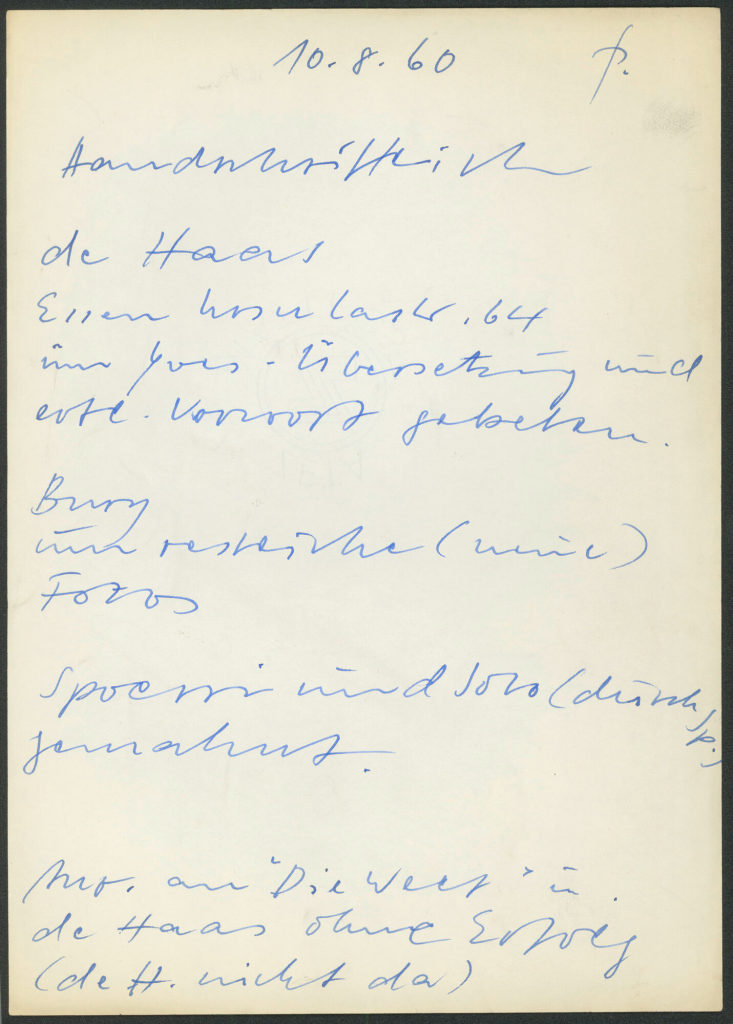 10.8.60 P.
Handschriftlich
de Haas
Essen Ursulastr. 64
um Yves-Übersetzung und
evtl. Vorwort gebeten.
Bury
um restliche (neue)
Fotos
Spoerri und Soto (durch Sp.)
gemahnt.
Anr. an "Die Welt" u.
de Haas ohne Erfolg
(de H. nicht da)